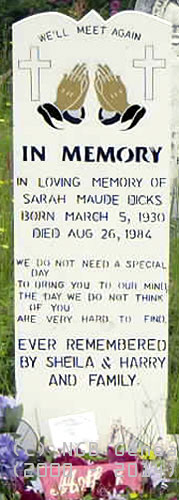 WE'LL MEET AGAIN
IN MEMORY
IN LOVING MEMORY OF
SARAH MAUDE DICKS
BORN MARCH 5, 1930
DIED AUG 26, 1984
WE DO NOT NEED A SPECIAL
DAY
TO BRING YOU TO OUR MIND
THE DAY WE DO NOT THINK
OF YOU
ARE VERY HARD TO FIND.
EVER REMEMBERED
BY SHEILA & HARRY
AND FAMILY.
Mother